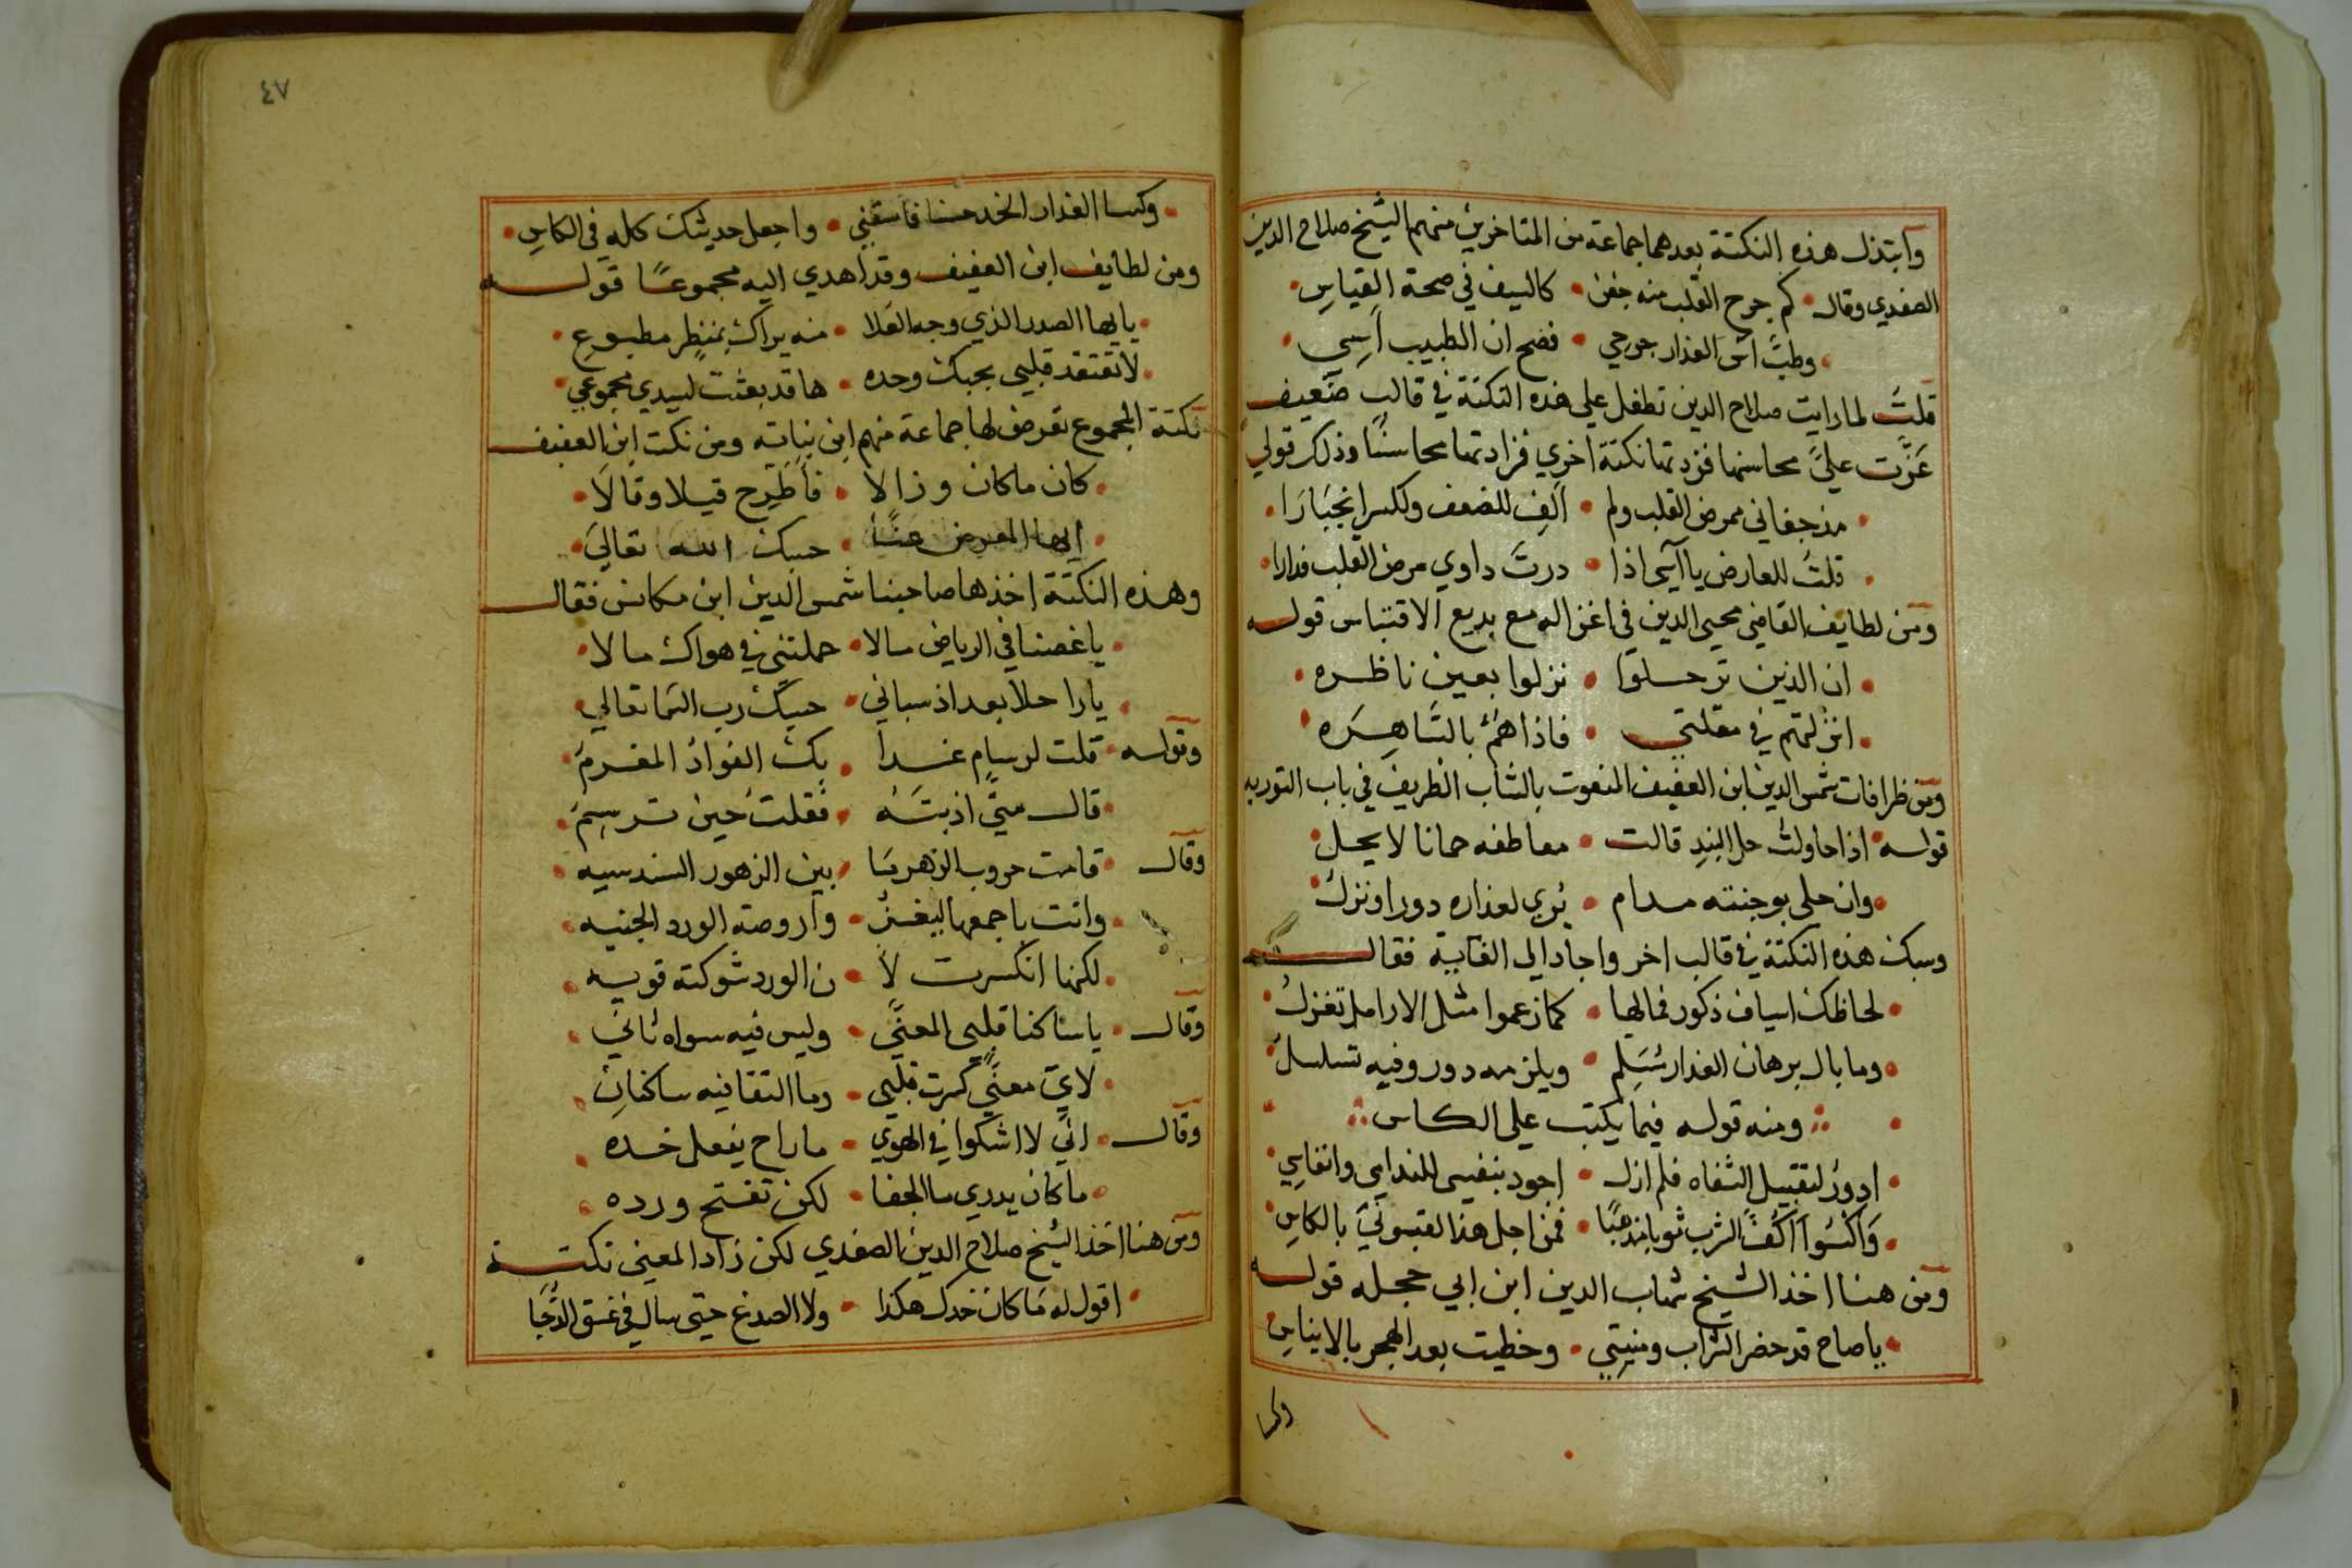 وابتذل هذه النكتة بعدهما جماعة من المتاخرين منهم الشيخ صلاح الدين
الصفدي وقال • كم جرح القلب منه جفن • كالسيف في صحة القياس •
• وطب اس العذار جرحي • فصح ان الطبيب اسي •
قلت لما رايت صلاح الدين تطفل علي هذه النكتة في قالب ضعيف
عزت علي محاسنها فزدتها نكتة اخري فزادتها محاسنا وذلك قولي
• مذ جفاني ممرض القلب ولم • الف للضعف وللكسر انجبارا •
• قلت للعارض يا اسي اذا • درت داوي مرض القلب فدارا •
ومن لطايف القاضي محيي الدين في اغزاله مع بديع الاقتباس قوله
• ان الذين ترحلوا • نزلوا بعين ناظره •
• انزلتهم في مقلتي • فاذا هم بالساهره •
ومن ظرافات شمس الدين ابن العفيف المنعوت بالشاب الظريف في باب التوريه
قوله • اذا حاولت حل البند قالت • معاطفه حمانا لا يحل •
• وان حلي بوجنته مدام • يري لعذاره دور ونزل •
وسبك هذه النكتة في قالب اخر واجاد الي الغاية فقال
• لحاظك اسياف ذكور فمالها • كما زعموا مثل الارامل تغزل •
• وما بال برهان العذار مسلم • ويلزمه دور وفيه تسلسل •
• ومنه قوله فيما يكتب علي الكاس •
• ادور لتقبيل الشفاه فلم ازل • اجود بنفسي للندامي وانفاسي •
• واكسوا اكف الشرب ثوبا مذهبا • فمن اجل هذا لقبوني بالكاس •
ومن هنا اخذ الشيخ شهاب الدين ابن ابي حجله قوله
• يا صاح قد حضر الشراب ومنيتي • وحظيت بعد الهجر بالايناس •
وكسا
٤٧
• وكسا العذار الخد حسنا فاسقني • واجعل حديثك كله في الكاس •
ومن لطايف ابن العفيف وقد اهدي اليه مجموعا قوله
• يا ايها الصدر الذي وجه العلا • منه يراك بمنظر مطبوع •
• لا تعتقد قلبي بحبك وحده • ها قد بعثت لسيدي مجموعي •
نكتة المجموع تعرض لها جماعة منهم ابن نباته ومن نكت ابن العفيف
• كان ما كان وزالا • فاطرح قيلا وقالا •
• ايها المعرض عنا • حسبك الله تعالي •
وهذه النكتة اخذها صاحبنا شمس الدين ابن مكانس فقال
• يا غصنا في الرياض مالا • حملتني في هواك مالا •
• يا راحلا بعد اذ سباني • حسبك رب السما تعالي •
وقوله • قلت لرسام غدا • بك الفواد المغرم •
• قال متي اذبته • فقلت حين ترسم •
وقال • قامت حروب الزهر ما • بين الزهور السندسيه •
• واتت باجمعها ليغز • وا روضة الورد الجنيه •
• لكنها انكسرت لا • ن الورد شوكته قويه •
وقال • يا ساكنا قلبي المعني • وليس فيه سواه ثاني •
• لاي معني كسرت قلبي • وما التقا فيه ساكنان •
وقال • اني لا اشكوا في الهوي • ما راح يفعل خده •
• ما كان يدري ما الجفا • لكن تفتح ورده •
ومن هنا اخذ الشيخ صلاح الدين الصفدي لكن زاد المعني نكتة
• اقول له ما كان خدك هكذا • ولا الصدغ حتي سال في غسق الدجا